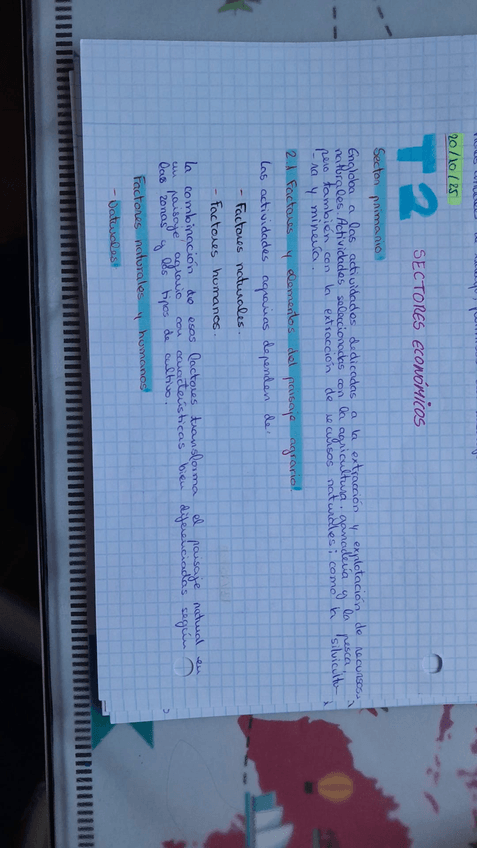 20/10/25
T2 SECTORES ECONÓMICOS
Sector primario
Engloba a las actividades dedicadas a la extracción y explotación de recursos
naturales. Actividades selaccionados con la agricultura, ganadería y la pesca,
pero también con la extracción de recursos naturales; como la silvicultu-
-ra y minería.
2.1 Factores y elementos del paisaje agrario
Las actividades agrarias dependen de:
- Factores naturales.
- Factores humanos.
La combinación de esos factores transforma el paisaje natural en
un paisaje agrario con características bien diferenciadas según
las zonas y los tipos de cultivo.
Factores naturales y humanos
- Naturales